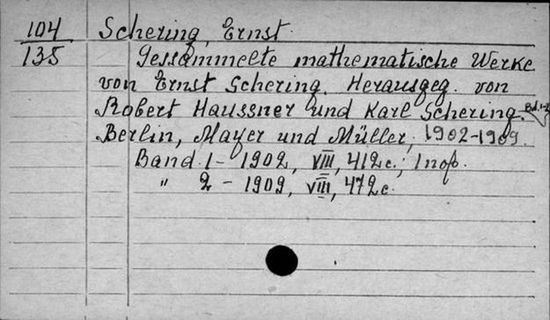 104 Schering, Ernst
135 Gessammelte mathematische Werke
von Ernst Schering. Herausgeg. von
Robert Haussner und Karl Schering. Bd. 1-2
Berlin, Mayer und Müller, 1902-1909.
Band 1 - 1902, VIII, 412 c.; 1 пор.
" 2 - 1909, VIII, 472 c.